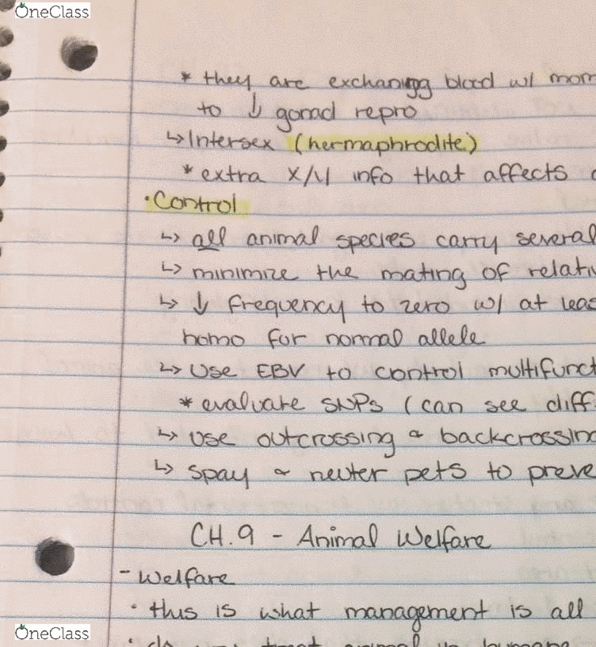 OneClass
* they are exchaning blood w/ mom
to ↓ gonad repro
↳ Intersex (hermaphrodite)
* extra X/Y info that affects
• Control
↳ all animal species carry several
↳ minimize the mating of relati
↳ ↓ frequency to zero w/ at leas
homo for normal allele
↳ Use EBV to control multifunct
* evaluate SNPs (can see diff
↳ use outcrossing & backcrossing
↳ spay & neuter pets to preve
CH.9 - Animal Welfare
- Welfare
• this is what management is all
OneClass